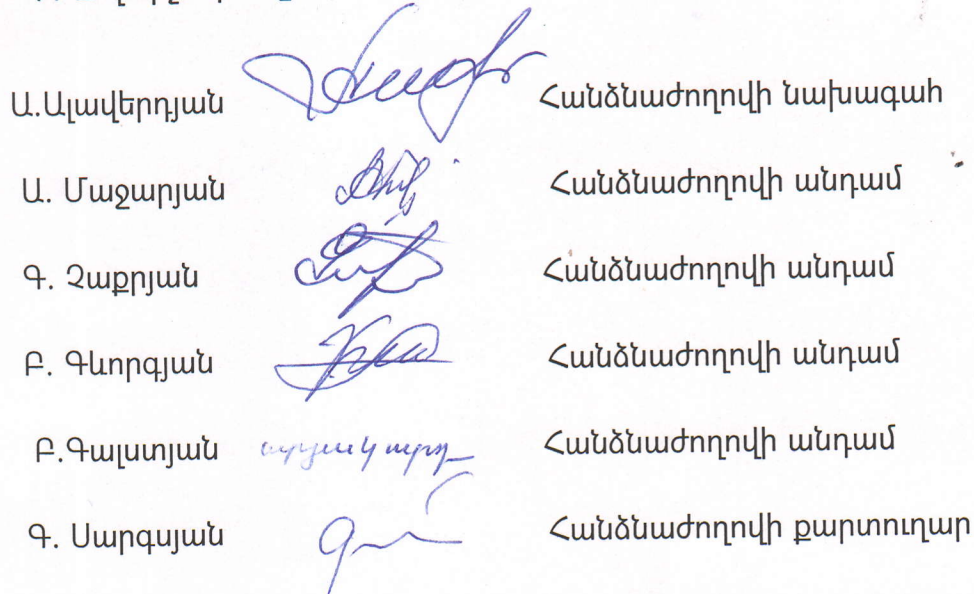 Ա.Ալավերդյան Հանձնաժողովի նախագահ
Ա. Մաջարյան Հանձնաժողովի անդամ
Գ. Չաքրյան Հանձնաժողովի անդամ
Բ. Գևորգյան Հանձնաժողովի անդամ
Բ.Գալստյան Հանձնաժողովի անդամ
Գ. Սարգսյան Հանձնաժողովի քարտուղար